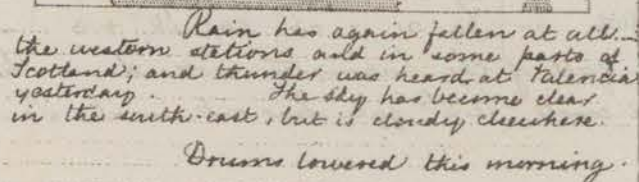 Rain has again fallen at all
the western stations and in some parts of
Scotland; and thunder was heard at Valencia
yesterday. The sky has become clear
in the south-east, but is cloudy elsewhere.
Drums lowered this morning.